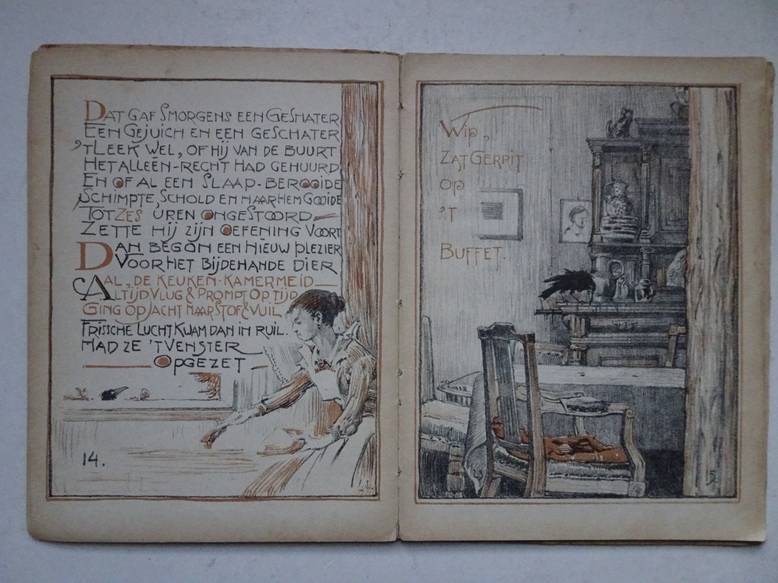 DAT GAF SMORGENS EEN GESNATER,
EEN GEJUICH EN EEN GESCHATER
'T LEEK WEL, OF HIJ VAN DE BUURT
HET ALLEEN-RECHT HAD GEHUURD,
EN OF AL EEN SLAAP-BEROOIDE
SCHIMPTE, SCHOLD EN NAAR HEM GOOIDE
TOT ZES UREN ONGESTOORD—
ZETTE HIJ ZIJN OEFENING VOORT
DAN BEGON EEN NIEUW PLEZIER
VOOR HET BIJDEHANDE DIER
AAL, DE KEUKEN-KAMERMEID—
ALTIJD VLUG & PROMPT OP TIJD
GING OP JACHT NAAR STOF & VUIL
FRISSCHE LUCHT KWAM DAN IN RUIL.
HAD ZE 'T VENSTER
OPGEZET—
14.
WIP,
ZAT GERRIT
OP
'T
BUFFET.